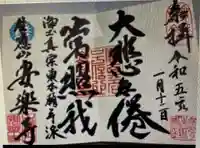 奉拝
令和五年
一月十二日
大悲無倦
常照我
浄土真宗東本願寺派
安楽寺